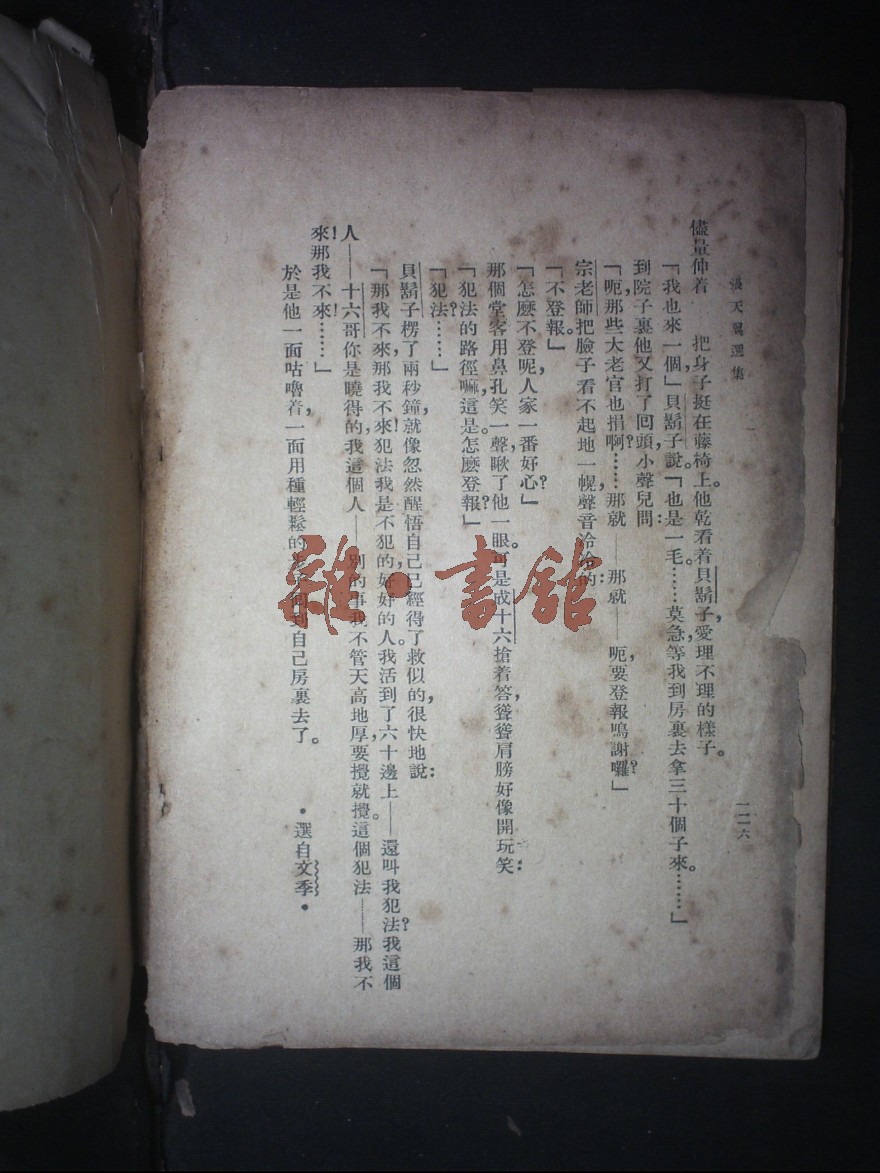 張天翼選集
一一六
儘量伸着 把身子挺在藤椅上。他乾看着貝鬍子,愛理不理的樣子。
「我也來一個,」貝鬍子說。「也是一毛。……莫急,等我到房裏去拿三十個子來。……」
到院子裏他又打了囘頭,小聲兒問:
「呃,那些大老官也捐啊?……那就——那就——呃,要登報鳴謝囉?」
宗老師把臉子看不起地一幌,聲音冷冷的:
「不登報。」
「怎麼不登呢,人家一番好心?」
那個堂客用鼻孔笑一聲,瞅了他一眼。可是成十六搶着答,聳聳肩膀好像開玩笑:
「犯法的路徑嘛,這是。怎麼登報?」
「犯法?……」
貝鬍子楞了兩秒鐘,就像忽然醒悟自己已經得了救似的,很快地說:
「那我不來,那我不來!犯法我是不犯的,好好的人。我活到了六十邊上——還叫我犯法?我這個
人——十六哥你是曉得的,我這個人——別的事我不管天高地厚,要攪就攪。這個犯法——那我不
來!那我不來!……」
於是他一面咕嚕着,一面用種輕鬆的 回到自己房裏去了。
•選自文季•
雜·書館